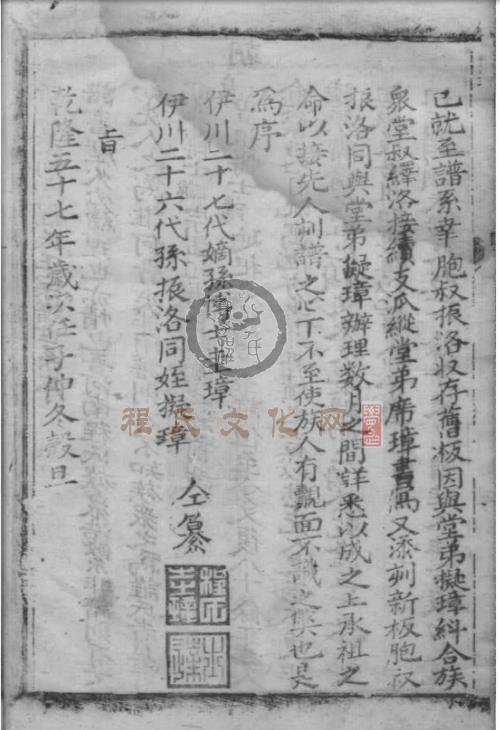 已就至譜系幸胞叔振洛收存舊板因與堂弟擬璋糾合族
衆堂叔繹洛接續支派縱堂弟席璋書寫又添刻新板胞叔
振洛同與堂弟擬璋辦理数月之間詳悉以成之上承祖之
命以接先人刺譜之心下不至使族人有覿面不識之弊也是
爲序
伊川二十七代嫡孫博士 璋
伊川二十六代孫振洛同姪擬璋
仝纂
旨
乾隆五十七年歲次壬子仲冬穀旦
程氏文化网